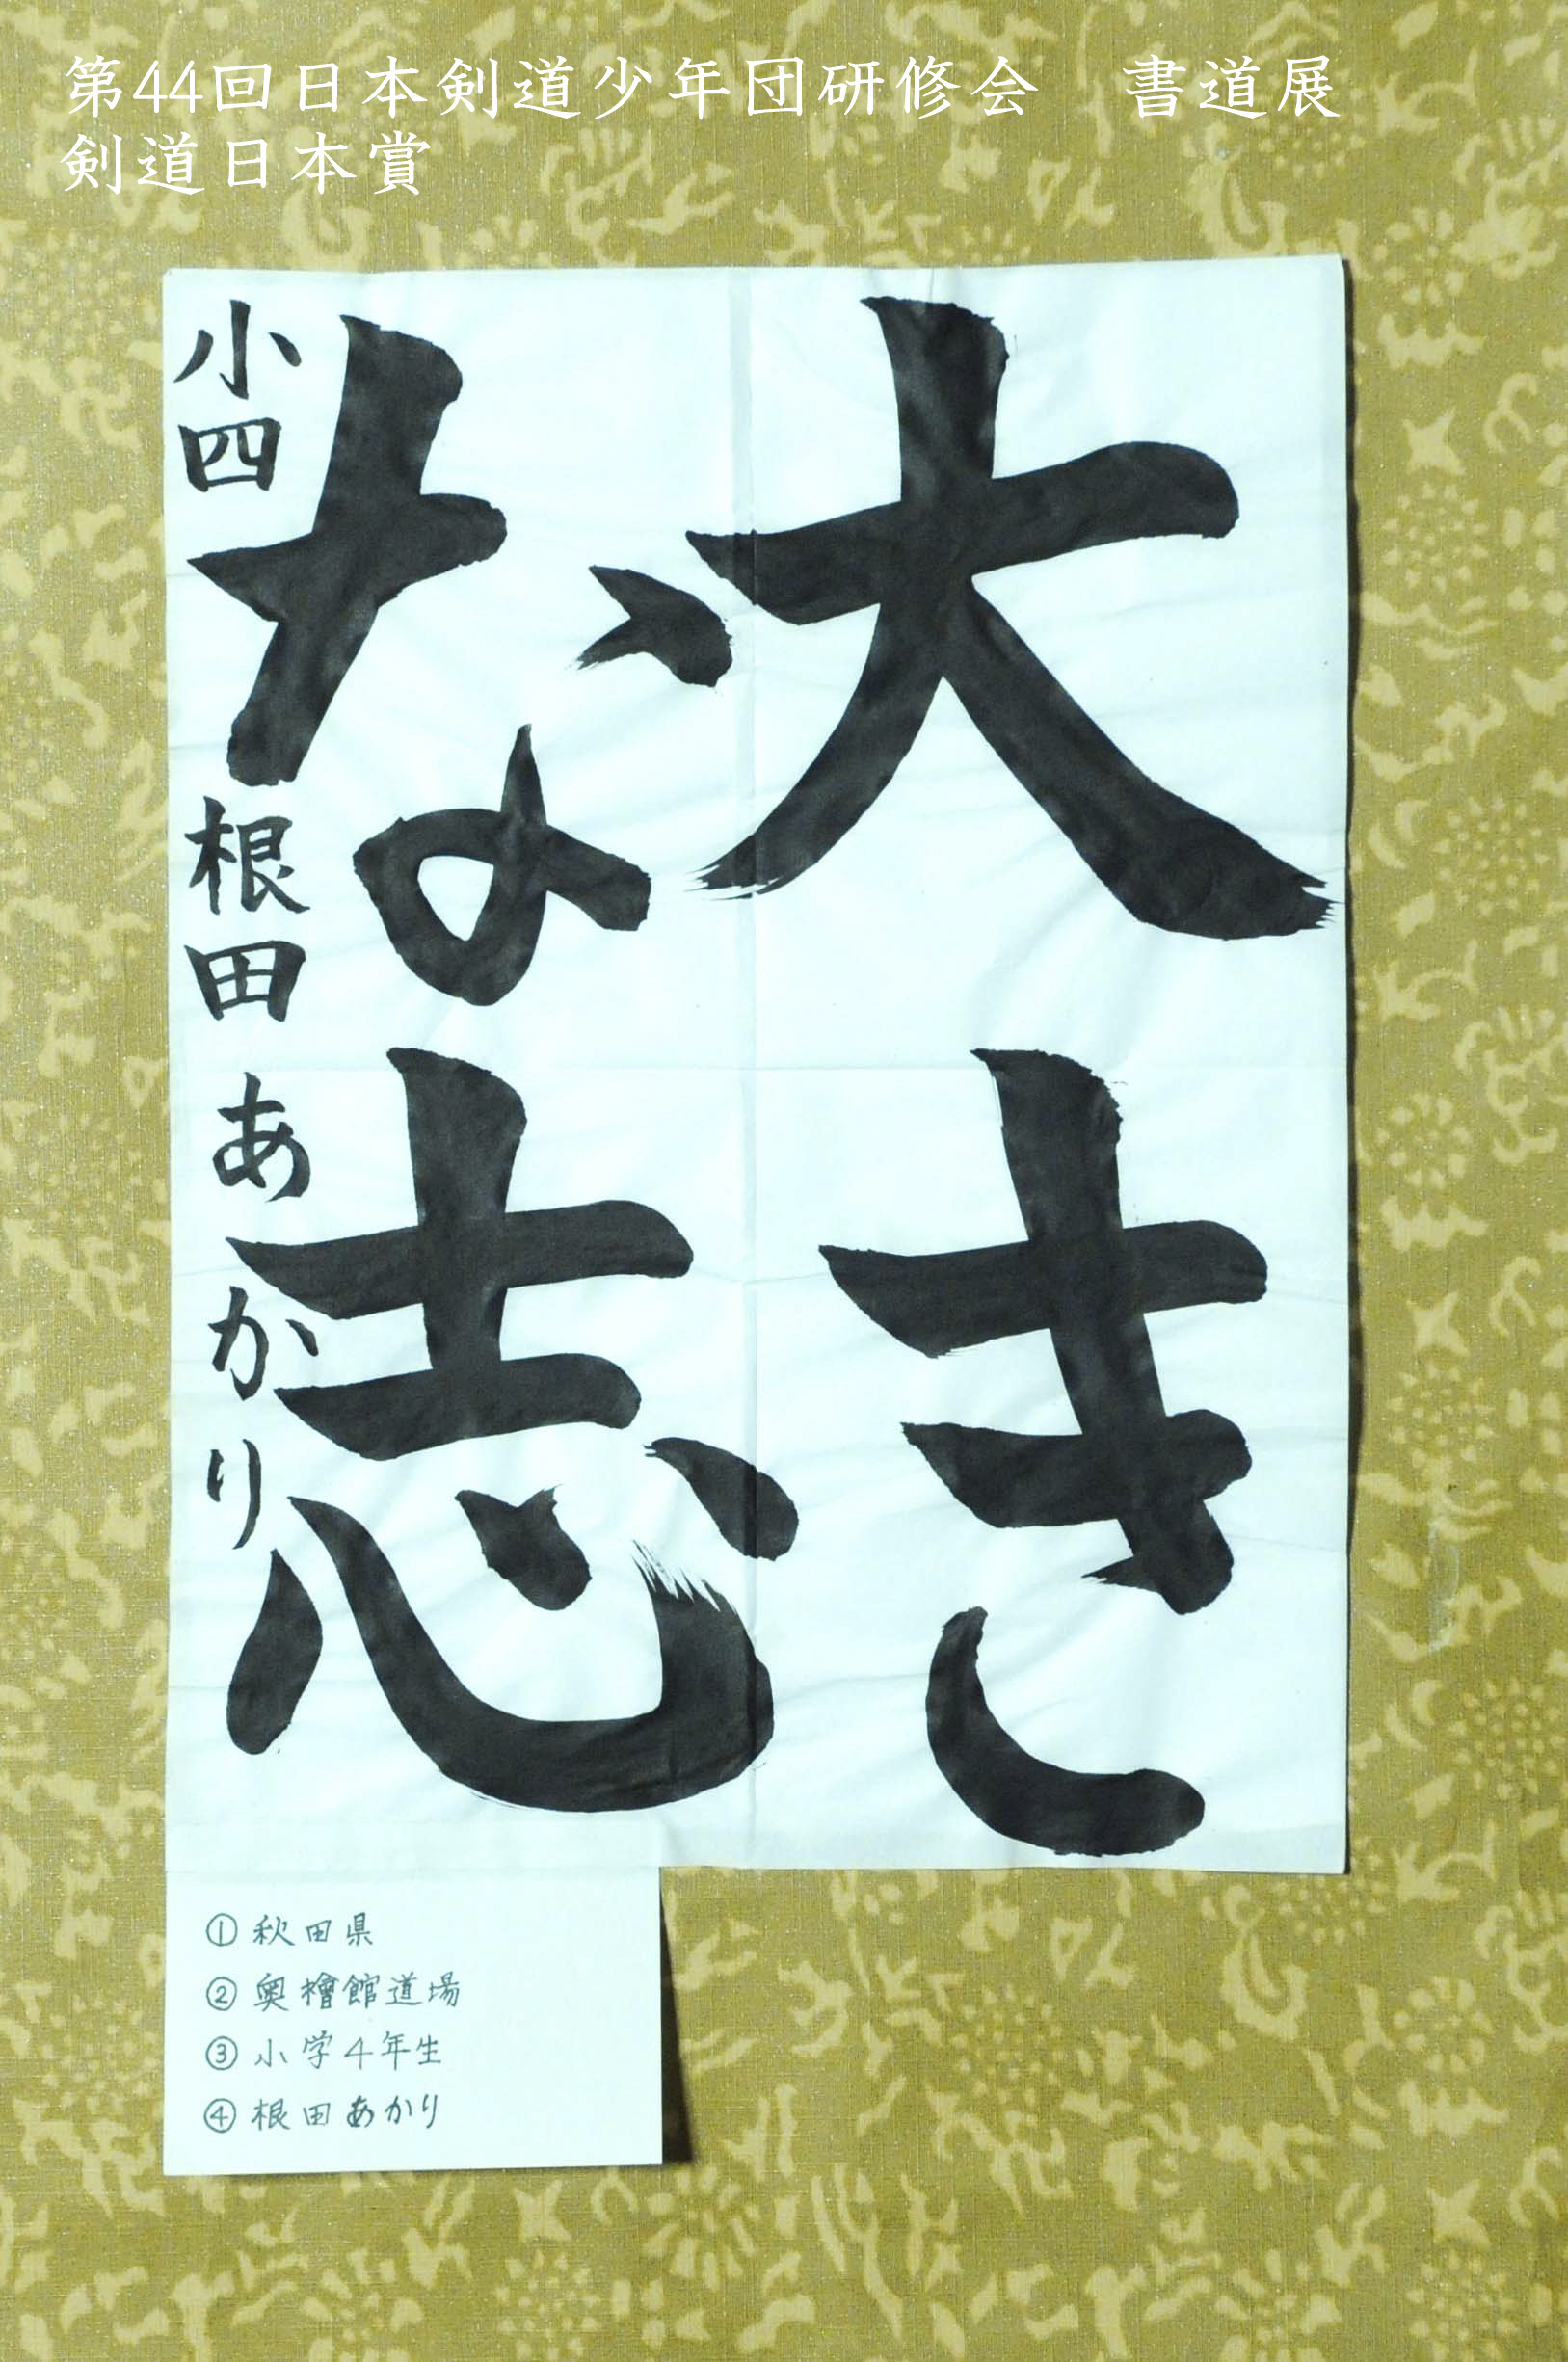 第44回日本剣道少年団研修会　書道展
剣道日本賞
大き
な志
小四 根田あかり
①秋田県
②奥檜館道場
③小学4年生
④根田あかり